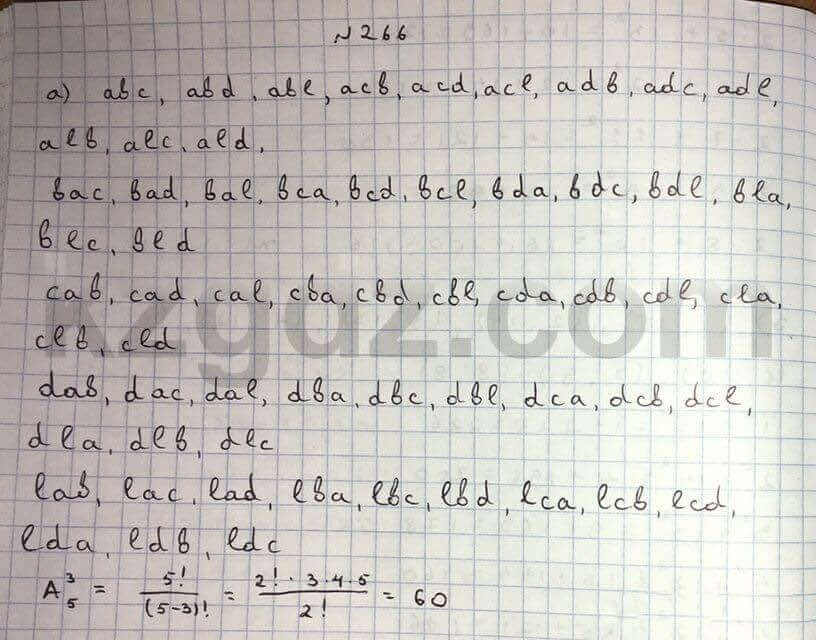 №266
a) abc, abd, abe, acb, acd, ace, adb, adc, ade,
aeb, aec, aed,
bac, bad, bae, bca, bcd, bce, bda, bdc, bde, bea,
bec, bed
cab, cad, cae, cba, cbd, cbe, cda, cdb, cde, cea,
ceb, ced
dab, dac, dae, dba, dbc, dbe, dca, dcb, dce,
dea, deb, dec
eab, eac, ead, eba, ebc, ebd, eca, ecb, ecd,
eda, edb, edc
A³₅ = 5!/(5-3)! = 2!·3·4·5/2! = 60
kzgdz.com